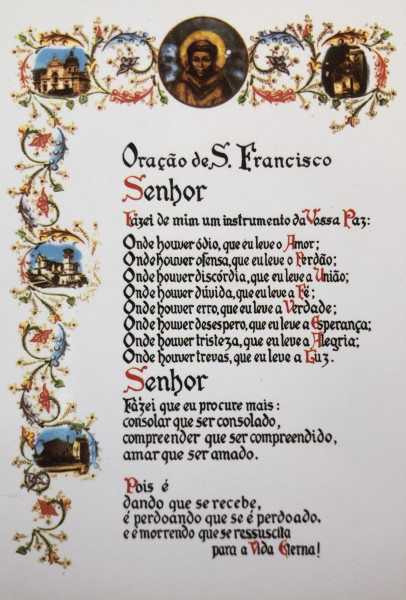 Oração de S. Francisco
Senhor
Fazei de mim um instrumento da Vossa Paz:
Onde houver ódio, que eu leve o Amor;
Onde houver ofensa, que eu leve o Perdão;
Onde houver discórdia, que eu leve a União;
Onde houver dúvida, que eu leve a Fé;
Onde houver erro, que eu leve a Verdade;
Onde houver desespero, que eu leve a Esperança;
Onde houver tristeza, que eu leve a Alegria;
Onde houver trevas, que eu leve a Luz.
Senhor
Fazei que eu procure mais:
consolar que ser consolado,
compreender que ser compreendido,
amar que ser amado.
Pois é
dando que se recebe,
é perdoando que se é perdoado.
e é morrendo que se ressuscita
para a Vida Eterna!